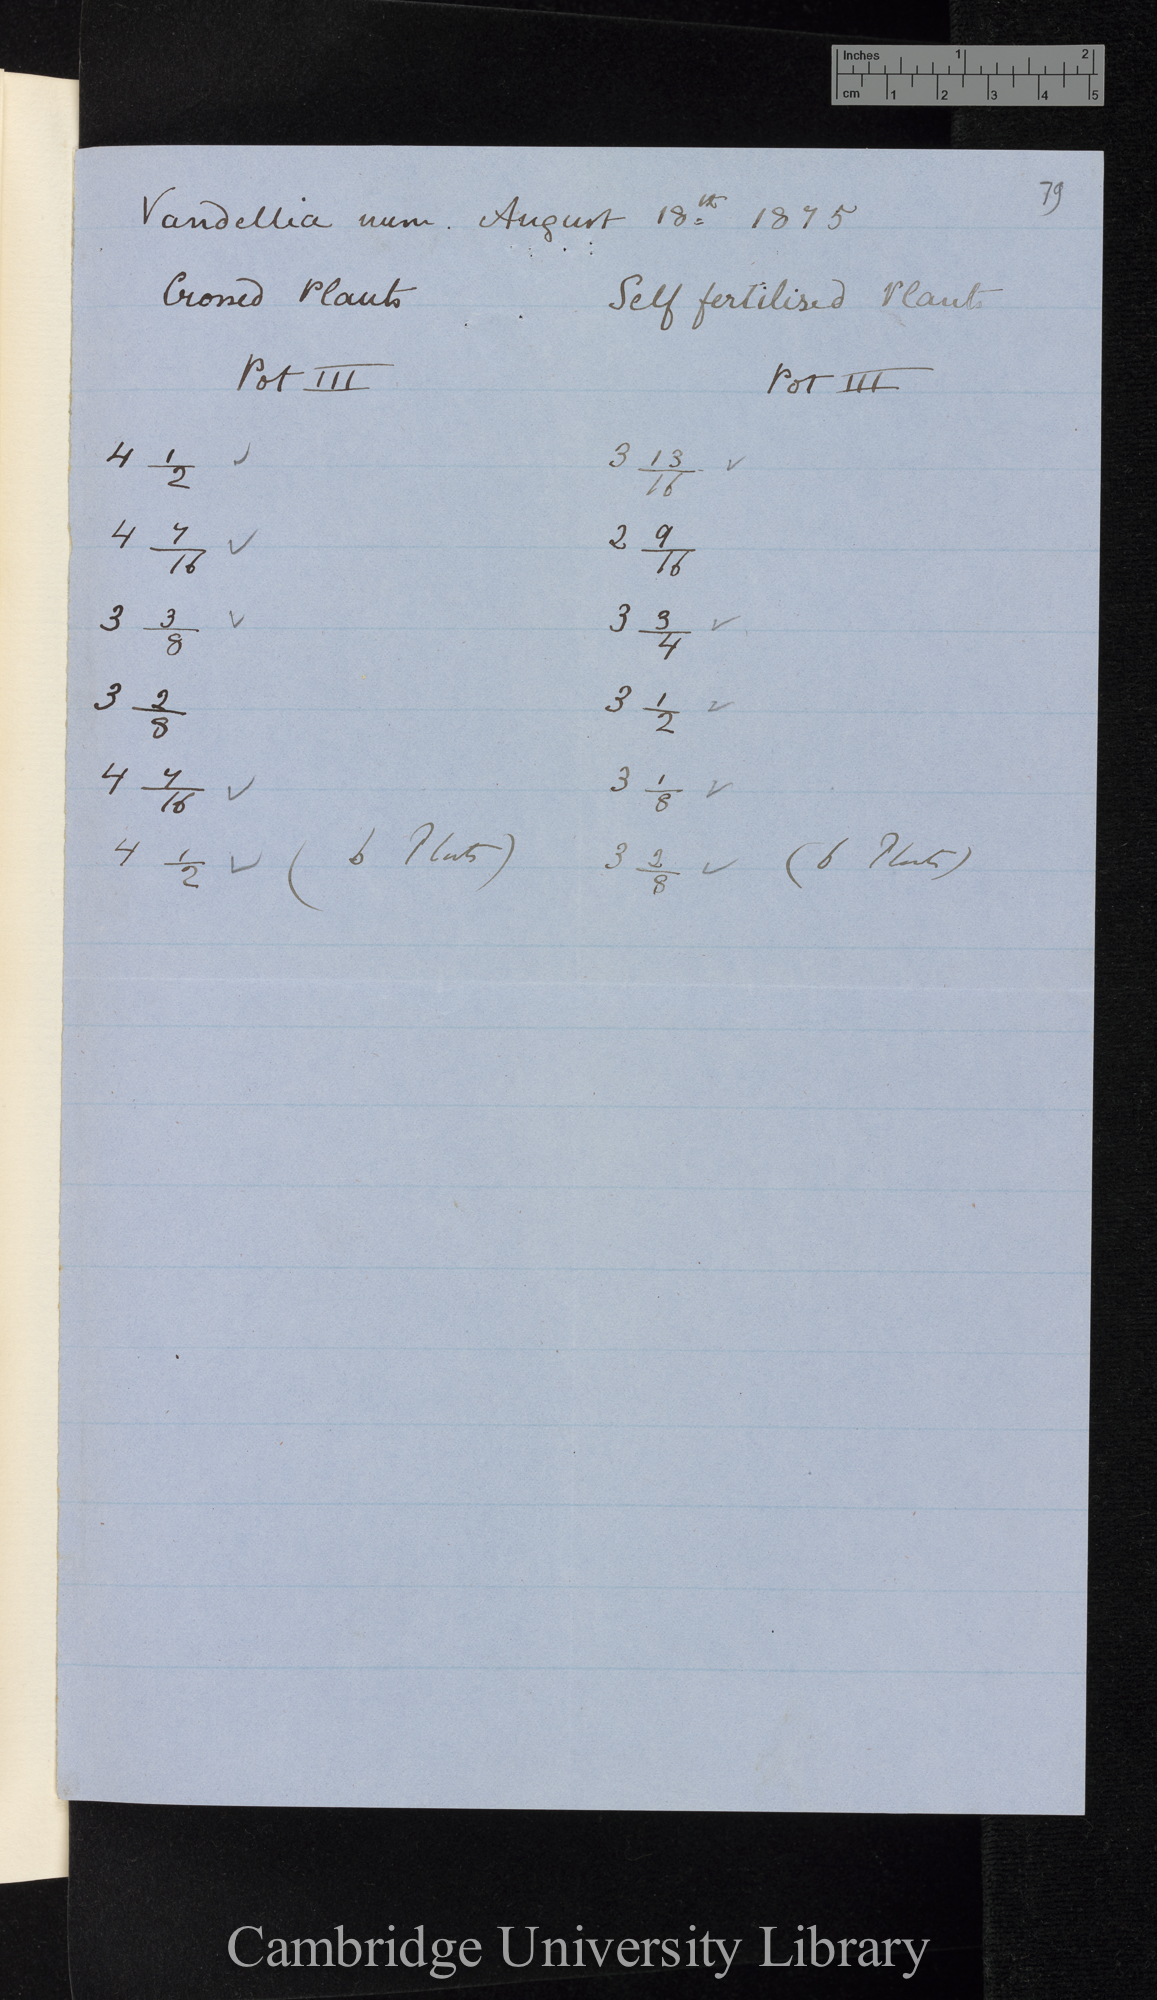 Inches 1 2
cm 1 2 3 4 5
79
Vandellia num. August 18th 1875
Crossed Plants Self fertilised Plants
Pot III Pot III
4 1/2 ✓ 3 13/16 ✓
4 7/16 ✓ 2 9/16
3 3/8 ✓ 3 3/4 ✓
3 2/8 3 1/2 ✓
4 7/16 ✓ 3 1/8 ✓
4 1/2 ✓ (6 Plants) 3 2/8 ✓ (6 Plants)
Cambridge University Library